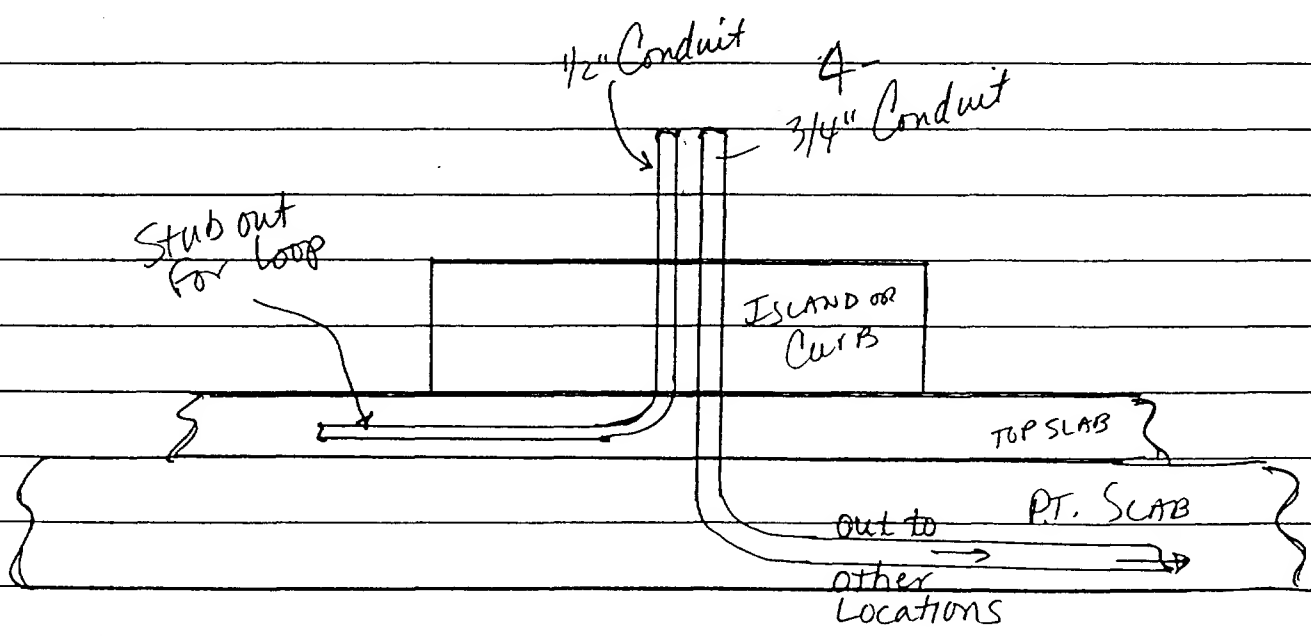 1/2" Conduit
4-
3/4" Conduit
Stub out
For Loop
ISLAND OR
CurB
TOP SLAB
P.T. SLAB
out to
other
LOCATIONS